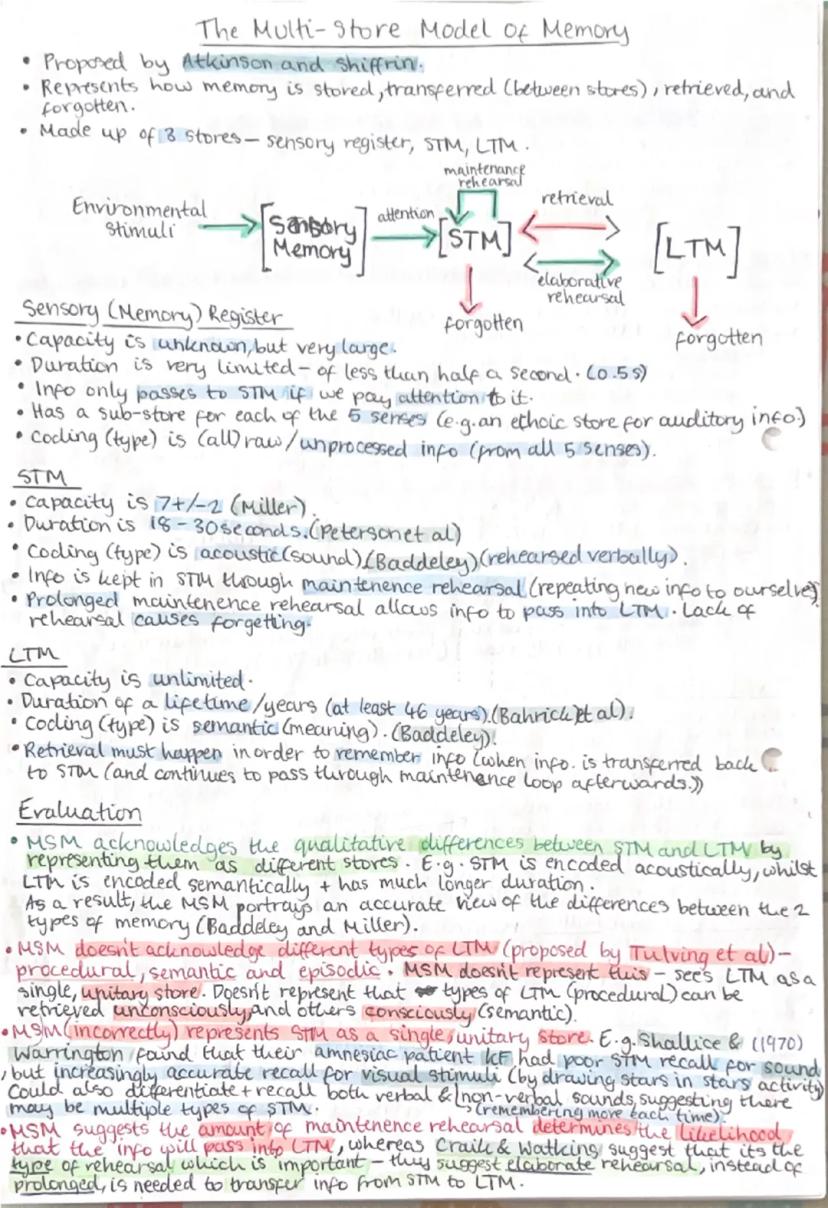 The Multi-Store Model of Memory
• Proposed by Atkinson and Shiffrin.
• Represents how memory is stored, transferred (between stores), retrieved, and
forgotten.
• Made up of 3 stores – sensory register, STM, LTM.
maintenance
rehearsal
Environmental
stimuli
[Sensory
Memory]
attention
[STM]
retrieval
elaborative
rehearsal
[LTM]
forgotten
forgotten
Sensory (Memory) Register
• Capacity is unknown, but very large.
• Duration is very limited – of less than half a second. (0.5s)
• Info only passes to STM if we pay attention to it.
• Has a sub-store for each of the 5 senses (e.g. an ethoic store for auditory info)
• Coding (type) is (all) raw/unprocessed info (from all 5 senses).
STM
• Capacity is 7+/-2 (Miller).
• Duration is 18-30 seconds. (Peterson et al)
• Coding (type) is acoustic (sound) (Baddeley) (rehearsed verbally).
• Info is kept in STM through maintenence rehearsal (repeating new info to ourselves)
• Prolonged maintenence rehearsal allows info to pass into LTM. Lack of
rehearsal causes forgetting.
LTM
• Capacity is unlimited.
• Duration of a lifetime/years (at least 46 years). (Bahrick et al).
• Coding (type) is semantic (meaning). (Baddeley).
• Retrieval must happen in order to remember info (when info. is transferred back
to STM (and continues to pass through maintenence loop afterwards.))
Evaluation
• MSM acknowledges the qualitative differences between STM and LTM by
representing them as different stores. E.g. STM is encoded acoustically, whilst
LTM is encoded semantically + has much longer duration.
As a result, the MSM portrays an accurate view of the differences between the 2
types of memory (Baddeley and Miller).
• MSM doesn't acknowledge different types of LTM (proposed by Tulving et al) –
procedural, semantic and episodic. MSM doesn't represent this – sees LTM as a
single, unitary store. Doesn't represent that types of LTM (procedural) can be
retrieved unconsciously, and others consciously (semantic).
• MSM (incorrectly) represents STM as a single, unitary store. E.g. Shallice & (1970)
Warrington found that their amnesiac patient KF had poor STM recall for sound
, but increasingly accurate recall for visual stimuli (by drawing stars in stars activity)
Could also differentiate + recall both verbal & non-verbal sounds, suggesting there
may be multiple types of STM. (remembering more each time).
• MSM suggests the amount of maintenence rehearsal determines the likelihood
that the info will pass into LTM, whereas Craik & Watkins suggest that its the
type of rehearsal which is important – they suggest elaborate rehearsal, instead of
prolonged, is needed to transfer info from STM to LTM.